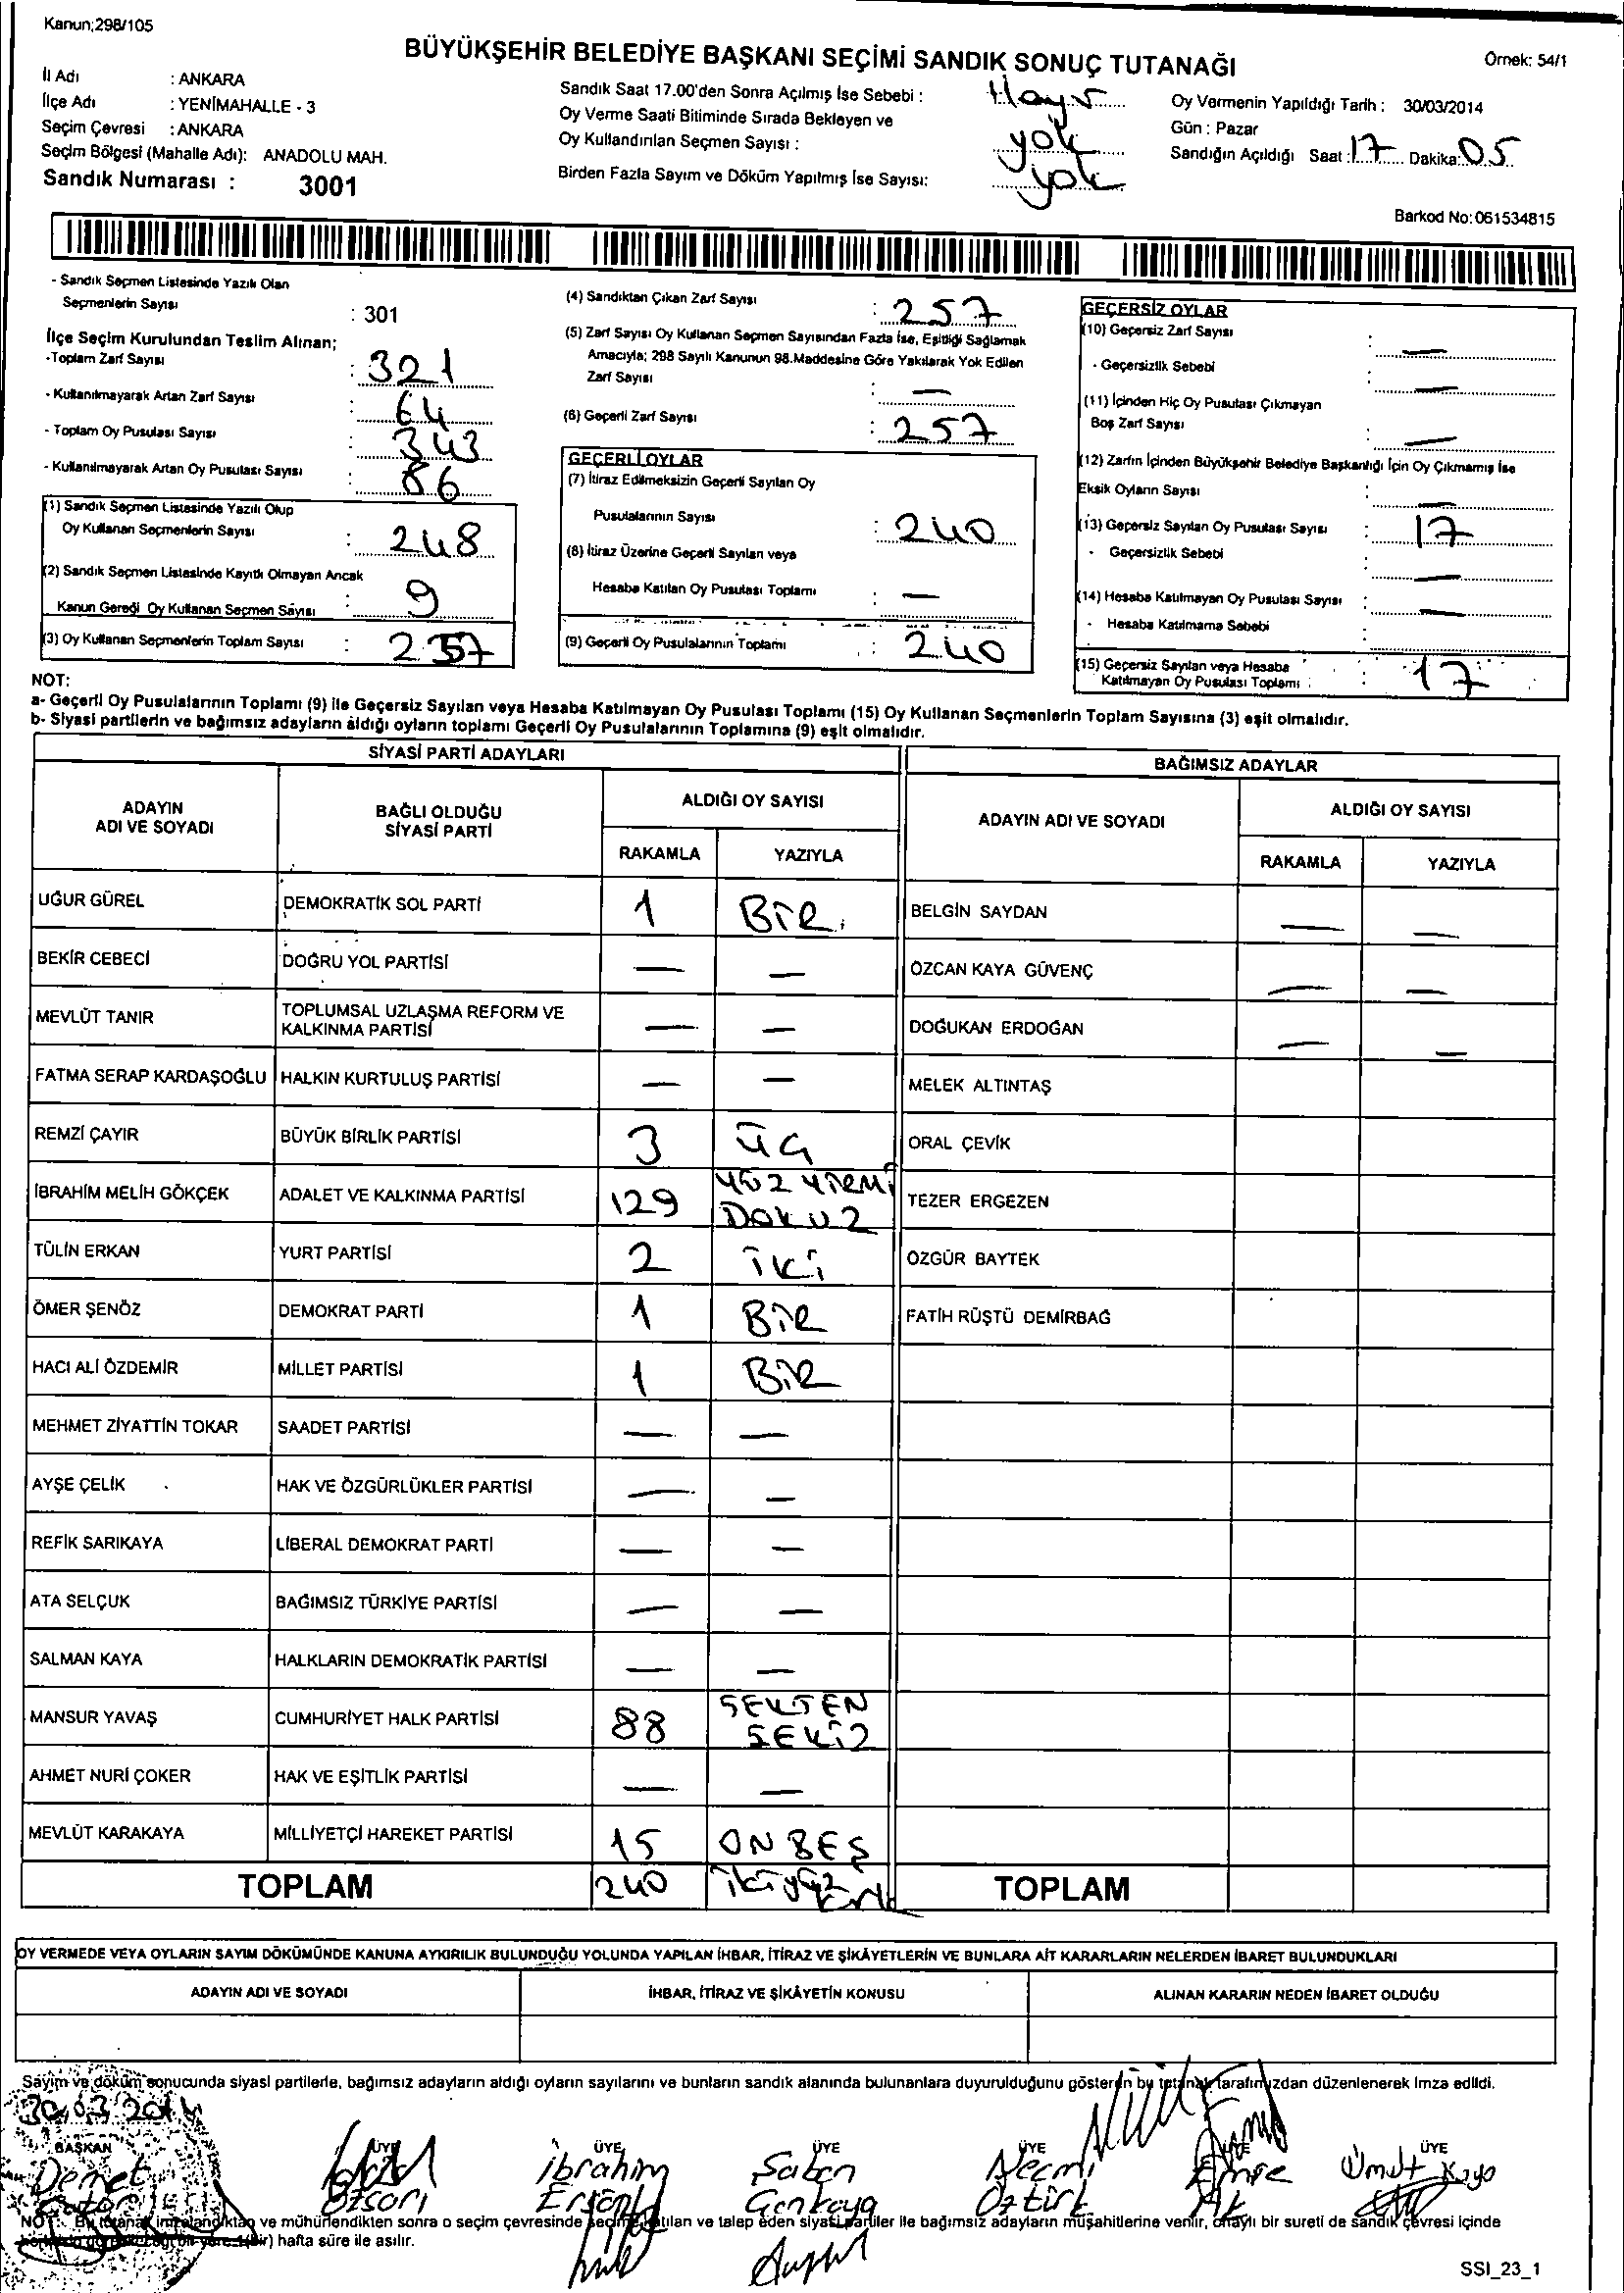 Kanun;298/105
BÜYÜKŞEHİR BELEDİYE BAŞKANI SEÇİMİ SANDIK SONUÇ TUTANAĞI
Örnek: 54/1
İl Adı : ANKARA
İlçe Adı : YENİMAHALLE - 3
Seçim Çevresi : ANKARA
Seçim Bölgesi (Mahalle Adı): ANADOLU MAH.
Sandık Numarası : 3001
Sandık Saat 17.00'den Sonra Açılmış İse Sebebi : Hayır
Oy Verme Saati Bitiminde Sırada Bekleyen ve
Oy Kullandırılan Seçmen Sayısı : yok
Birden Fazla Sayım ve Döküm Yapılmış İse Sayısı: yok
Oy Vermenin Yapıldığı Tarih : 30/03/2014
Gün : Pazar
Sandığın Açıldığı Saat : 17 Dakika: 05
Barkod No: 061534815
- Sandık Seçmen Listesinde Yazılı Olan
Seçmenlerin Sayısı : 301
İlçe Seçim Kurulundan Teslim Alınan;
-Toplam Zarf Sayısı : 321
- Kullanılmayarak Artan Zarf Sayısı : 64
- Toplam Oy Pusulası Sayısı : 343
- Kullanılmayarak Artan Oy Pusulası Sayısı : 86
(1) Sandık Seçmen Listesinde Yazılı Olup
Oy Kullanan Seçmenlerin Sayısı : 248
(2) Sandık Seçmen Listesinde Kayıtlı Olmayan Ancak
Kanun Gereği Oy Kullanan Seçmen Sayısı : 9
(3) Oy Kullanan Seçmenlerin Toplam Sayısı : 257
(4) Sandıktan Çıkan Zarf Sayısı : 257
(5) Zarf Sayısı Oy Kullanan Seçmen Sayısından Fazla İse, Eşitliği Sağlamak
Amacıyla; 298 Sayılı Kanunun 98.Maddesine Göre Yakılarak Yok Edilen
Zarf Sayısı : —
(6) Geçerli Zarf Sayısı : 257
GEÇERLİ OYLAR
(7) İtiraz Edilmeksizin Geçerli Sayılan Oy
Pusulalarının Sayısı : 240
(8) İtiraz Üzerine Geçerli Sayılan veya
Hesaba Katılan Oy Pusulası Toplamı : —
(9) Geçerli Oy Pusulalarının Toplamı : 240
GEÇERSİZ OYLAR
(10) Geçersiz Zarf Sayısı : —
- Geçersizlik Sebebi : —
(11) İçinden Hiç Oy Pusulası Çıkmayan
Boş Zarf Sayısı : —
(12) Zarfın İçinden Büyükşehir Belediye Başkanlığı İçin Oy Çıkmamış İse
Eksik Oyların Sayısı : —
(13) Geçersiz Sayılan Oy Pusulası Sayısı : 17
- Geçersizlik Sebebi : —
(14) Hesaba Katılmayan Oy Pusulası Sayısı : —
- Hesaba Katılmama Sebebi :
(15) Geçersiz Sayılan veya Hesaba
Katılmayan Oy Pusulası Toplamı : 17
NOT:
a- Geçerli Oy Pusulalarının Toplamı (9) ile Geçersiz Sayılan veya Hesaba Katılmayan Oy Pusulası Toplamı (15) Oy Kullanan Seçmenlerin Toplam Sayısına (3) eşit olmalıdır.
b- Siyasi partilerin ve bağımsız adayların aldığı oyların toplamı Geçerli Oy Pusulalarının Toplamına (9) eşit olmalıdır.
SİYASİ PARTİ ADAYLARI
BAĞIMSIZ ADAYLAR
ADAYIN ADI VE SOYADI
BAĞLI OLDUĞU SİYASİ PARTİ
ALDIĞI OY SAYISI
RAKAMLA YAZIYLA
ADAYIN ADI VE SOYADI
ALDIĞI OY SAYISI
RAKAMLA YAZIYLA
UĞUR GÜREL DEMOKRATİK SOL PARTİ 1 BİR BELGİN SAYDAN — —
BEKİR CEBECİ DOĞRU YOL PARTİSİ — — ÖZCAN KAYA GÜVENÇ — —
MEVLÜT TANIR TOPLUMSAL UZLAŞMA REFORM VE KALKINMA PARTİSİ — — DOĞUKAN ERDOĞAN — —
FATMA SERAP KARDAŞOĞLU HALKIN KURTULUŞ PARTİSİ — — MELEK ALTINTAŞ
REMZİ ÇAYIR BÜYÜK BİRLİK PARTİSİ 3 ÜÇ ORAL ÇEVİK
İBRAHİM MELİH GÖKÇEK ADALET VE KALKINMA PARTİSİ 129 YÜZ YİRMİ DOKUZ TEZER ERGEZEN
TÜLİN ERKAN YURT PARTİSİ 2 İKİ ÖZGÜR BAYTEK
ÖMER ŞENÖZ DEMOKRAT PARTİ 1 BİR FATİH RÜŞTÜ DEMİRBAĞ
HACI ALİ ÖZDEMİR MİLLET PARTİSİ 1 BİR
MEHMET ZİYATTİN TOKAR SAADET PARTİSİ — —
AYŞE ÇELİK HAK VE ÖZGÜRLÜKLER PARTİSİ — —
REFİK SARIKAYA LİBERAL DEMOKRAT PARTİ — —
ATA SELÇUK BAĞIMSIZ TÜRKİYE PARTİSİ — —
SALMAN KAYA HALKLARIN DEMOKRATİK PARTİSİ — —
MANSUR YAVAŞ CUMHURİYET HALK PARTİSİ 88 SEKSEN SEKİZ
AHMET NURİ ÇOKER HAK VE EŞİTLİK PARTİSİ — —
MEVLÜT KARAKAYA MİLLİYETÇİ HAREKET PARTİSİ 15 ON BEŞ
TOPLAM 240 ikiyüz kırk TOPLAM
OY VERMEDE VEYA OYLARIN SAYIM DÖKÜMÜNDE KANUNA AYKIRILIK BULUNDUĞU YOLUNDA YAPILAN İHBAR, İTİRAZ VE ŞİKÂYETLERİN VE BUNLARA AİT KARARLARIN NELERDEN İBARET BULUNDUKLARI
ADAYIN ADI VE SOYADI İHBAR, İTİRAZ VE ŞİKÂYETİN KONUSU ALINAN KARARIN NEDEN İBARET OLDUĞU
Sayım ve döküm sonucunda siyasi partilerle, bağımsız adayların aldığı oyların sayılarını ve bunların sandık alanında bulunanlara duyurulduğunu gösteren bu tutanak tarafımızdan düzenlenerek imza edildi.
30.03.2014
BAŞKAN ÜYE ÜYE ÜYE ÜYE ÜYE ÜYE
Demet İbrahim Saban Necmi Emre Ümut Kaya
Özsarı Genkaya Öztürk Ak
NOT: Bu tutanak imzalandıktan ve mühürlendikten sonra o seçim çevresinde seçime katılan ve talep eden siyasi partiler ile bağımsız adayların müşahitlerine verilir, onaylı bir sureti de sandık çevresi içinde
hafta süre ile asılır.
SSI_23_1